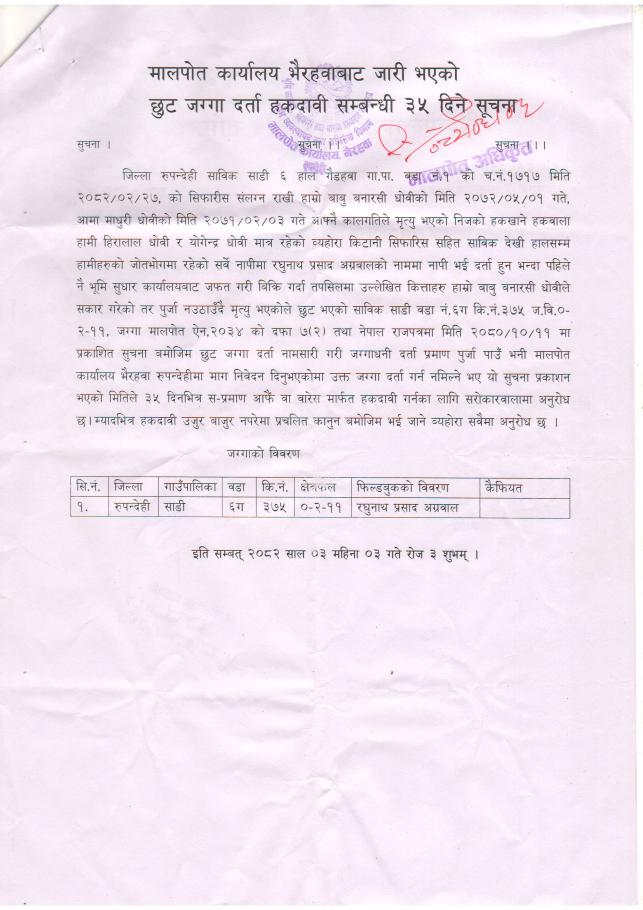 मालपोत कार्यालय भैरहवाबाट जारी भएको
छुट जग्गा दर्ता हकदावी सम्बन्धी ३५ दिने सूचना
सुचना । सुचना ।। सुचना ।।।
मालपोत कार्यालय, भैरहवा
मालपोत अधिकृत
जिल्ला रुपन्देही साविक साडी ६ हाल गैडहवा गा.पा. वडा नं.१ को च.नं.१७१७ मिति
२०८२/०२/२७, को सिफारीस संलग्न राखी हाम्रो बाबु बनारसी धोवीको मिति २०७२/०५/०१ गते,
आमा माधुरी धोवीको मिति २०७१/०२/०३ गते आफ्नै कालगतिले मृत्यु भएको निजको हकखाने हकवाला
हामी हिरालाल धोवी र योगेन्द्र धोवी मात्र रहेको व्यहोरा किटानी सिफारिस सहित साविक देखी हालसम्म
हामीहरुको जोतभोगमा रहेको सर्वे नापीमा रघुनाथ प्रसाद अग्रवालको नाममा नापी भई दर्ता हुन भन्दा पहिले
नै भूमि सुधार कार्यालयबाट जफत गरी बिक्रि गर्दा तपसिलमा उल्लेखित कित्ताहरु हाम्रो बाबु बनारसी धोवीले
सकार गरेको तर पुर्जा नउठाउँदै मृत्यु भएकोले छुट भएको साविक साडी वडा नं.६ग कि.नं.३७५ ज.वि.०-
२-११, जग्गा मालपोत ऐन,२०३४ को दफा ७(२) तथा नेपाल राजपत्रमा मिति २०८०/१०/११ मा
प्रकाशित सुचना बमोजिम छुट जग्गा दर्ता नामसारी गरी जग्गाधनी दर्ता प्रमाण पुर्जा पाउँ भनी मालपोत
कार्यालय भैरहवा रुपन्देहीमा माग निवेदन दिनुभएकोमा उक्त जग्गा दर्ता गर्न नमिल्ने भए यो सुचना प्रकाशन
भएको मितिले ३५ दिनभित्र स-प्रमाण आफैं वा वारेस मार्फत हकदावी गर्नका लागि सरोकारवालामा अनुरोध
छ।म्यादभित्र हकदावी उजुर बाजुर नपरेमा प्रचलित कानुन बमोजिम भई जाने व्यहोरा सवैमा अनुरोध छ ।
जग्गाको विवरण
सि.नं. जिल्ला गाउँपालिका वडा कि.नं. क्षेत्रफल फिल्डबुकको विवरण कैफियत
१. रुपन्देही साडी ६ग ३७५ ०-२-११ रघुनाथ प्रसाद अग्रवाल
इति सम्बत् २०८२ साल ०३ महिना ०३ गते रोज ३ शुभम् ।